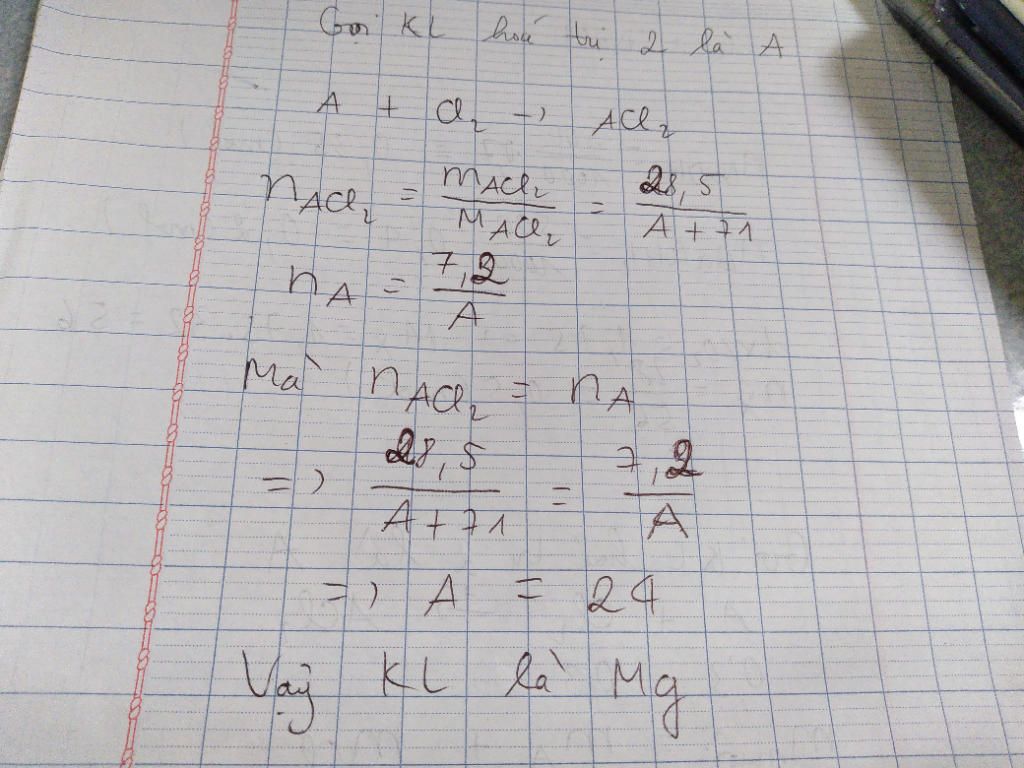 Gọi KL hoá trị 2 là A
A + Cl₂ → ACl₂
n_ACl₂ = m_ACl₂ / M_ACl₂ = 28,5 / A + 71
n_A = 7,2 / A
Mà n_ACl₂ = n_A
=> 28,5 / A + 71 = 7,2 / A
=> A = 24
Vậy KL là Mg